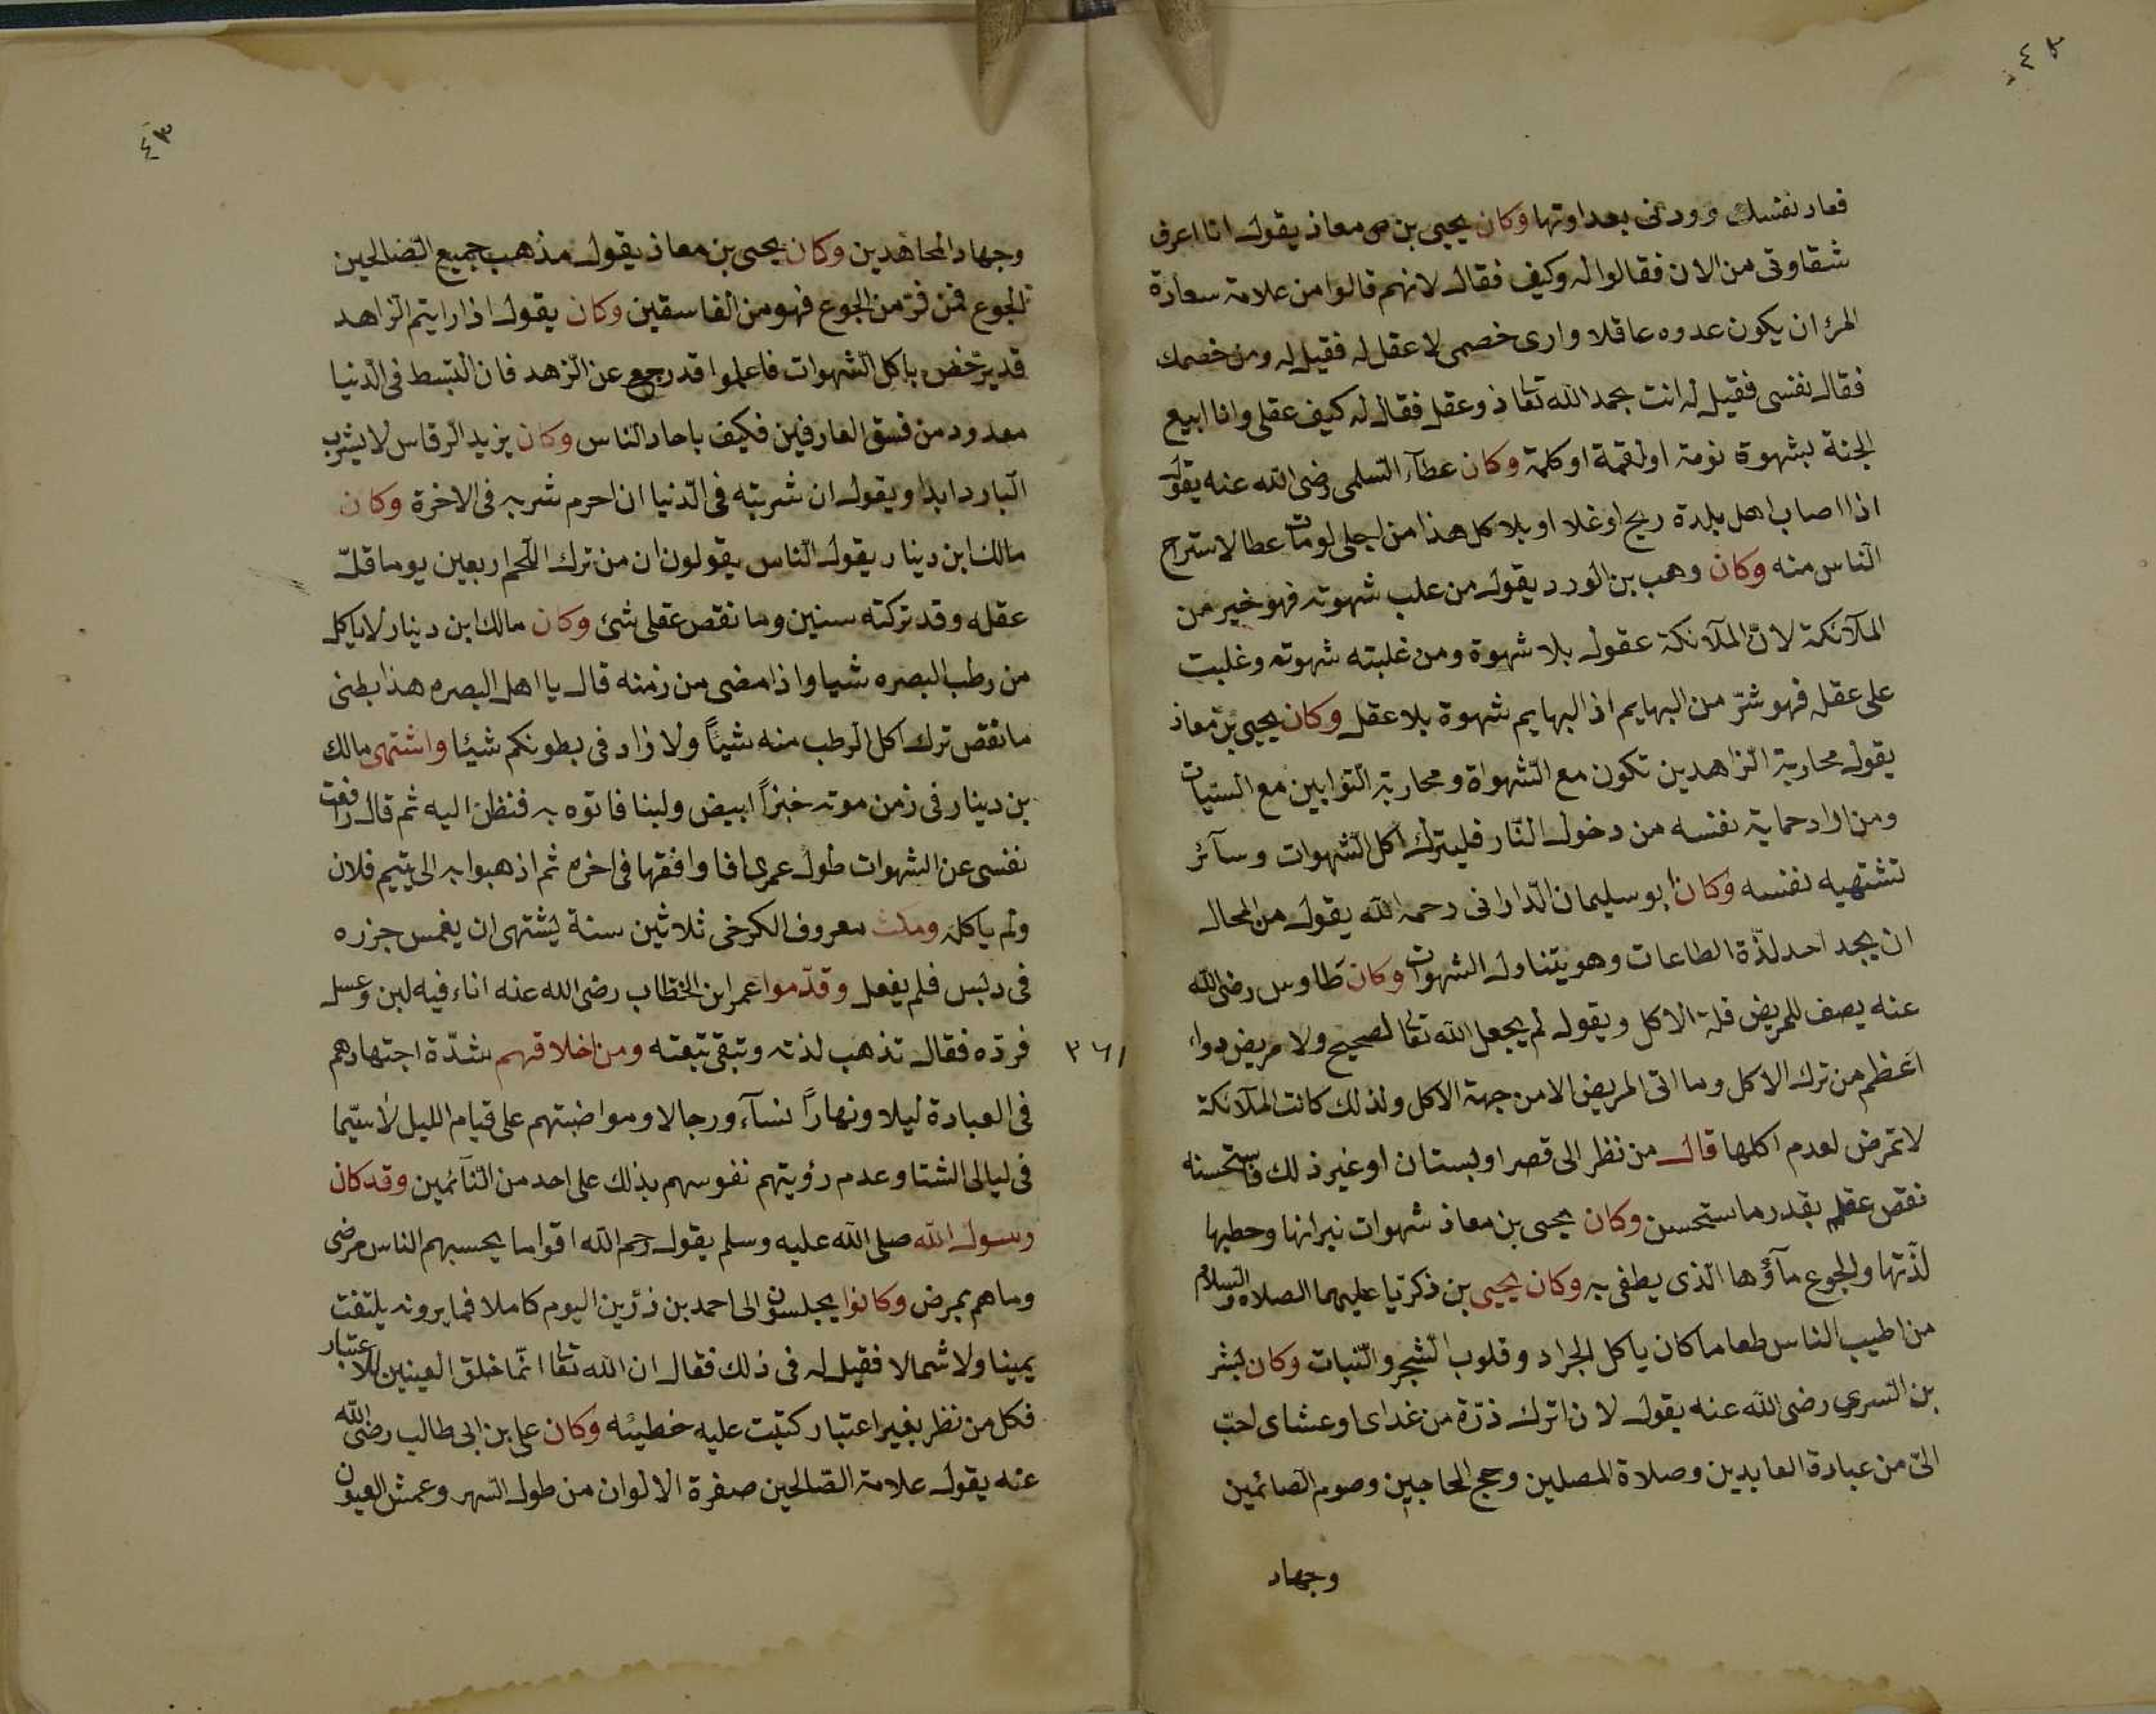 فعاد نفسك وودنى بعداوتها وكان يحيى بن معاذ يقول انا اعرف
شقاوتى من الان فقالوا له وكيف فقال لانهم قالوا من علامة سعادة
المرئ ان يكون عدوه عاقلا وارى خصمى لا عقل له فقيل له ومن خصمك
فقال نفسى فقيل له انت بحمد الله تعا ذو عقل فقال له كيف عقلى وانا ابيع
الجنة بشهوة نومة او لقمة او كلمة وكان عطآء السلمى رضى الله عنه يقول
اذا اصاب اهل بلدة ريح او غلا او بلا كل هذا من اجلى لو مات عطا لاستراح
الناس منه وكان وهب بن الورد يقول من علب شهوته فهو خير من
الملآئكة لانّ الملآئكة عقول بلا شهوة ومن غلبته شهوته وغلبت
على عقله فهو شرّ من البهايم اذ البهايم شهوة بلا عقل وكان يحيى بن معاذ
يقول محاربة الزاهدين تكون مع الشهواة ومحاربة التوابين مع السيات
ومن اراد حماية نفسه من دخول النّار فليترك اكل الشهوات وسآئر
تشتهيه نفسه وكان ابو سليمان الدّارانى رحمه الله يقول من المحال
ان يجد احد لذّة الطاعات وهو يتناول الشهوات وكان طاوس رضى الله
عنه يصف للمريض قلة الاكل ويقول لم يجعل الله تعا لصحيح ولا مريض دواء
اعظم من ترك الاكل وما اتى المريض الا من جهة الاكل ولذلك كانت الملآئكة
لا تمرض لعدم اكلها قال من نظر الى قصر او بستان او غير ذلك فاستحسنه
نقص عقله بقدر ما ستحسن وكان يحيى بن معاذ شهوات نيرانها وحطبها
لذّتها والجوع مآؤها الّذى يطفى به وكان يحيى بن زكريّا عليهما الصلاه والسلام
من اطيب الناس طعاما كان ياكل الجراد وقلوب الشجر والنّبات وكان بشر
بن السرى رضى الله عنه يقول لان اترك ذرّة من غداى او عشاى احبّ
الىّ من عبادة العابدين وصلاة المصلين وحجّ الحاجين وصوم الصائمين
وجهاد
٤٣
وجهاد المجاهدين وكان يحيى بن معاذ يقول مذهب جميع الصّالحين
الجوع فمن فرّ من الجوع فهو من الفاسقين وكان يقول اذا رايتم الزاهد
قد يرّخص باكل الشهوات فاعلموا قد رجع عن الزهد فان التبسط فى الدّنيا
معدود من فسق العارفين فكيف باحاد الناس وكان يزيد الرقاس لا يشرب
البارد ابدا ويقول ان شربته فى الدّنيا ان احرم شربه فى الاخرة وكان
مالك ابن دينار يقول النّاس يقولون ان من ترك اللّحم اربعين يوما قلّ
عقله وقد تركته سنين وما نقص عقلى شئ وكان مالك ابن دينار لا ياكل
من رطب البصره شيا واذا مضى من زمنه قال يا اهل البصره هذا بطنى
ما نقص ترك اكل الرطب منه شيأً ولا زاد فى بطونكم شيئا واشتهى مالك
بن دينار فى زمن موته خبزاً ابيض ولبنا فاتوه به فنظر اليه ثم قال رافعت
نفسى عن الشهوات طول عمرى افا وافقها فى اخره ثم اذهبوا به الى يتيم فلان
ولم ياكله ومكث معروف الكرخى ثلاثين سنة يشتهى ان يغمس جزره
فى دبس فلم يفعل وقدّموا عمر ابن الخطاب رضى الله عنه اناء فيه لبن وعسل
فردّه فقال تذهب لذته وتبقى تبعته ومن اخلاقهم شدّة اجتهادهم
فى العبادة ليلا ونهاراً نسآء ورجالا ومواضبتهم على قيام الليل لاسيّما
فى ليالى الشتا وعدم رؤيتهم نفوسهم بذلك على احد من النّآئمين وقد كان
رسول الله صلى الله عليه وسلم يقول رحم الله اقواما يحسبهم الناس مرضى
وما هم بمرض وكانوا يجلسون الى احمد بن زرّين اليوم كاملا فما يرونه يلتفت
يمينا ولا شمالا فقيل له فى ذلك فقال ان الله تعا انّما خلق العينين للاعتبار
فكل من نظر بغير اعتبار كتبت عليه خطيئه وكان على بن ابى طالب رضى الله
عنه يقول علامة الصّالحين صفرة الالوان من طول السّهر وعمش العيون